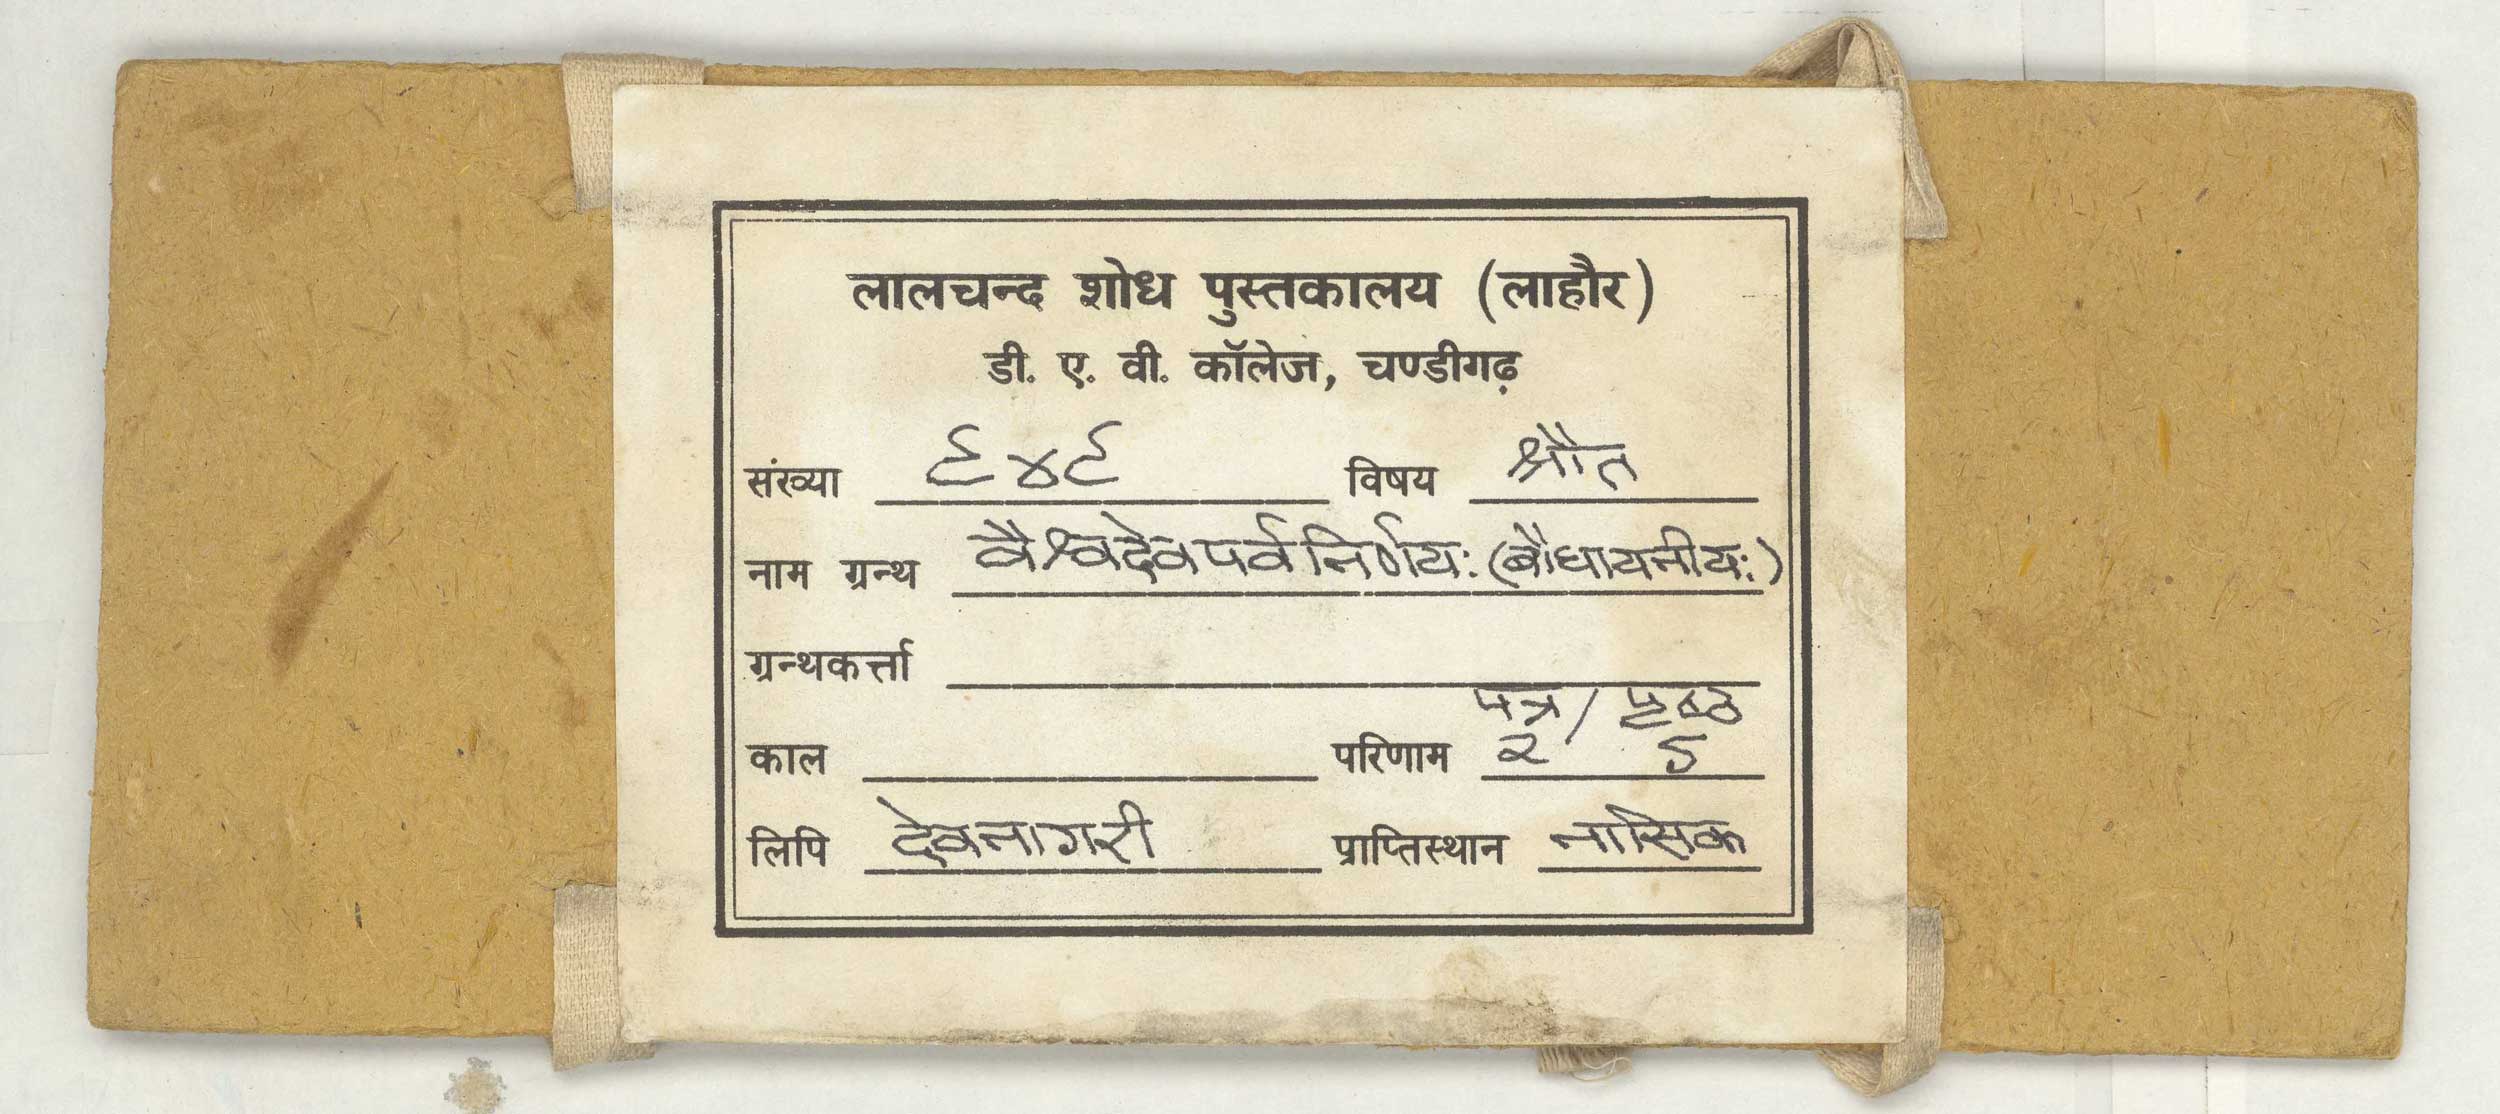 लालचन्द शोध पुस्तकालय (लाहौर)
डी. ए. वी. कॉलेज, चण्डीगढ़
संख्या ६४६ विषय श्रौत
नाम ग्रन्थ वैश्वदेवपर्वनिर्णयः (बौधायनीयः)
ग्रन्थकर्त्ता
पत्र / पृष्ठ
काल परिणाम २ ऽ
लिपि देवनागरी प्राप्तिस्थान नासिक